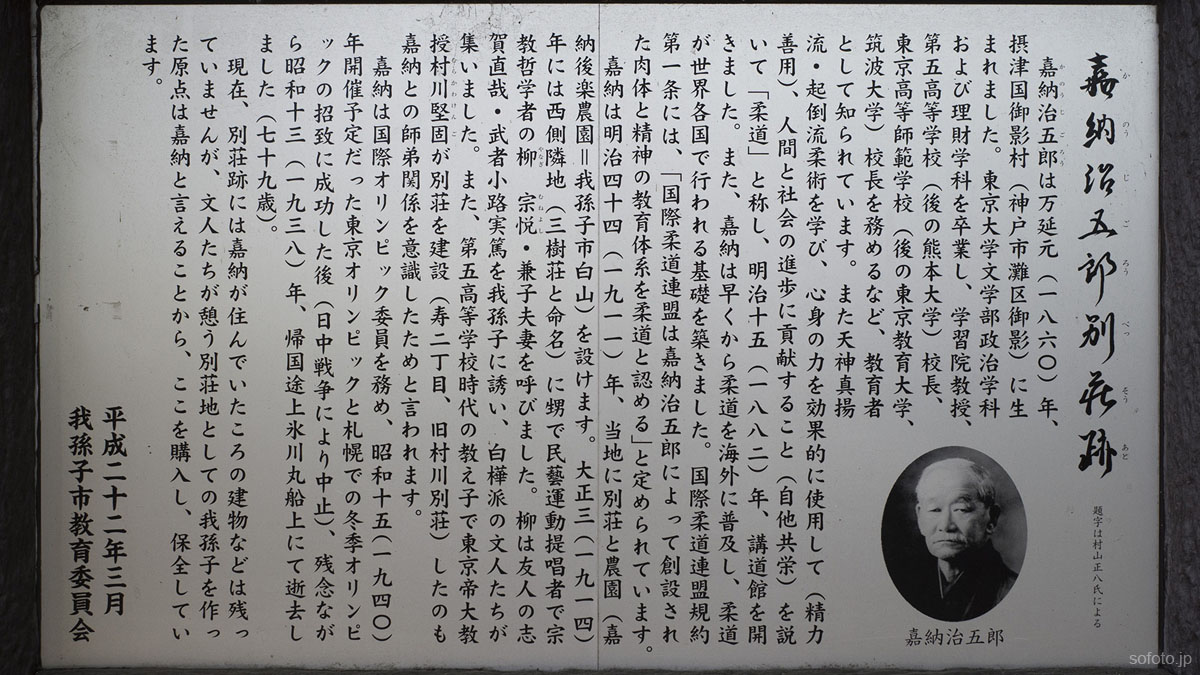 嘉納治五郎別荘跡
かのうじごろうべっそうあと
題字は村山正八氏による
嘉納治五郎は万延元（一八六〇）年、
かのうじごろう
摂津国御影村（神戸市灘区御影）に生
まれました。東京大学文学部政治学科
および理財学科を卒業し、学習院教授、
第五高等学校（後の熊本大学）校長、
東京高等師範学校（後の東京教育大学、
筑波大学）校長を務めるなど、教育者
として知られています。また天神真揚
流・起倒流柔術を学び、心身の力を効果的に使用して（精力
善用）、人間と社会の進歩に貢献すること（自他共栄）を説
いて「柔道」と称し、明治十五（一八八二）年、講道館を開
きました。また、嘉納は早くから柔道を海外に普及し、柔道
が世界各国で行われる基礎を築きました。国際柔道連盟規約
第一条には、「国際柔道連盟は嘉納治五郎によって創設され
た肉体と精神の教育体系を柔道と認める」と定められています。
嘉納は明治四十四（一九一一）年、当地に別荘と農園（嘉
納後楽農園＝我孫子市白山）を設けます。大正三（一九一四）
年には西側隣地（三樹荘と命名）に甥で民藝運動提唱者で宗
教哲学者の柳　宗悦・兼子夫妻を呼びました。柳は友人の志
やなぎ　むねよし
賀直哉・武者小路実篤を我孫子に誘い、白樺派の文人たちが
集いました。また、第五高等学校時代の教え子で東京帝大教
授村川堅固が別荘を建設（寿二丁目、旧村川別荘）したのも
むらかわけんご
嘉納との師弟関係を意識したためと言われます。
嘉納は国際オリンピック委員を務め、昭和十五（一九四〇）
年開催予定だった東京オリンピックと札幌での冬季オリンピ
ックの招致に成功した後（日中戦争により中止）、残念なが
ら昭和十三（一九三八）年、帰国途上氷川丸船上にて逝去し
ました（七十九歳）。
現在、別荘跡には嘉納が住んでいたころの建物などは残っ
ていませんが、文人たちが憩う別荘地としての我孫子を作っ
た原点は嘉納と言えることから、ここを購入し、保全してい
ます。
平成二十二年三月
我孫子市教育委員会
嘉納治五郎
sofoto.jp